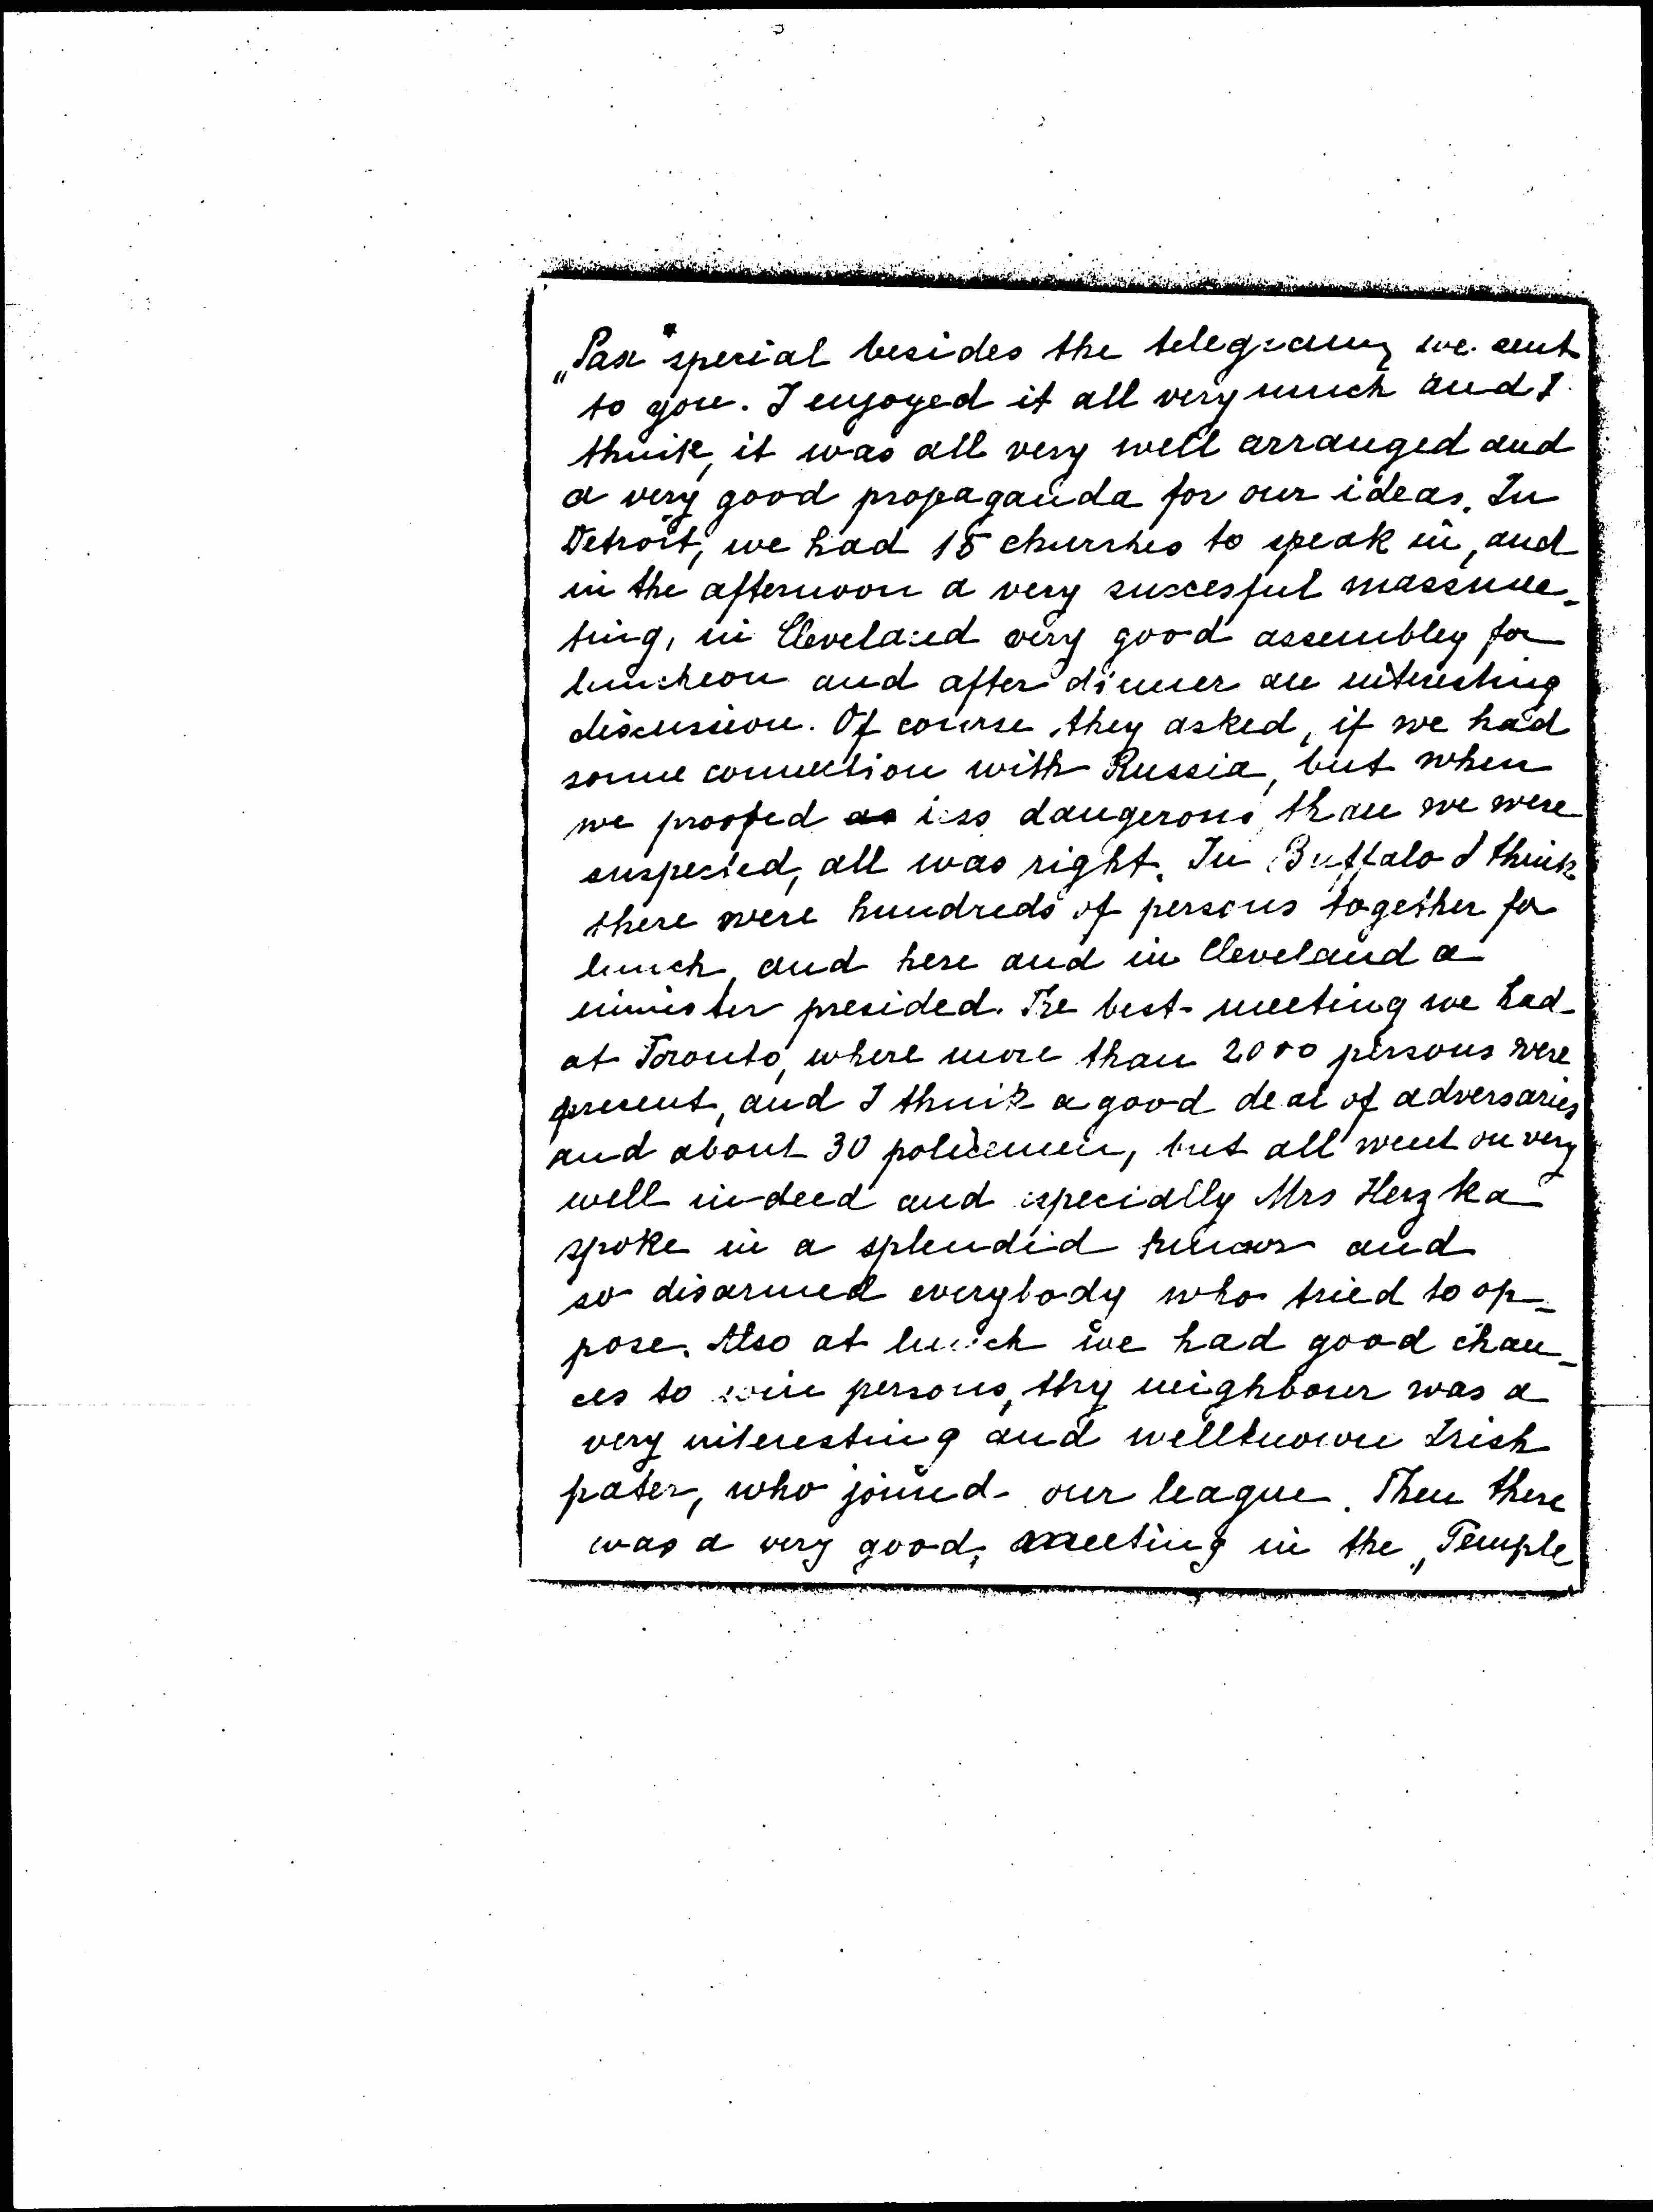 „Pax" special besides the telegram, we sent
to you. I enjoyed it all very much and I
think, it was all very well arranged and
a very good propaganda for our ideas. In
Detroit, we had 15 churches to speak in, and
in the afternoon a very succesful massmee-
ting, in Cleveland very good assembley for
luncheon and after dinner an interesting
discussion. Of course, they asked, if we had
some connection with Russia, but when
we proofed as less dangerous, than we were
suspected, all was right. In Buffalo I think
there were hundreds of persons together for
lunch, and here and in Cleveland a
minister presided. The best meeting we had
at Toronto, where more than 2000 persons were
present, and I think a good deal of adversaries
and about 30 policemen, but all went on very
well indeed and especially Mrs Herzka
spoke in a splendid humor and
so disarmed everybody who tried to op-
pose. Also at lunch we had good chan-
ces to win persons, thy neighbour was a
very interesting and wellknown Irish
pater, who joined our league. Then there
was a very good, meeting in the „Temple